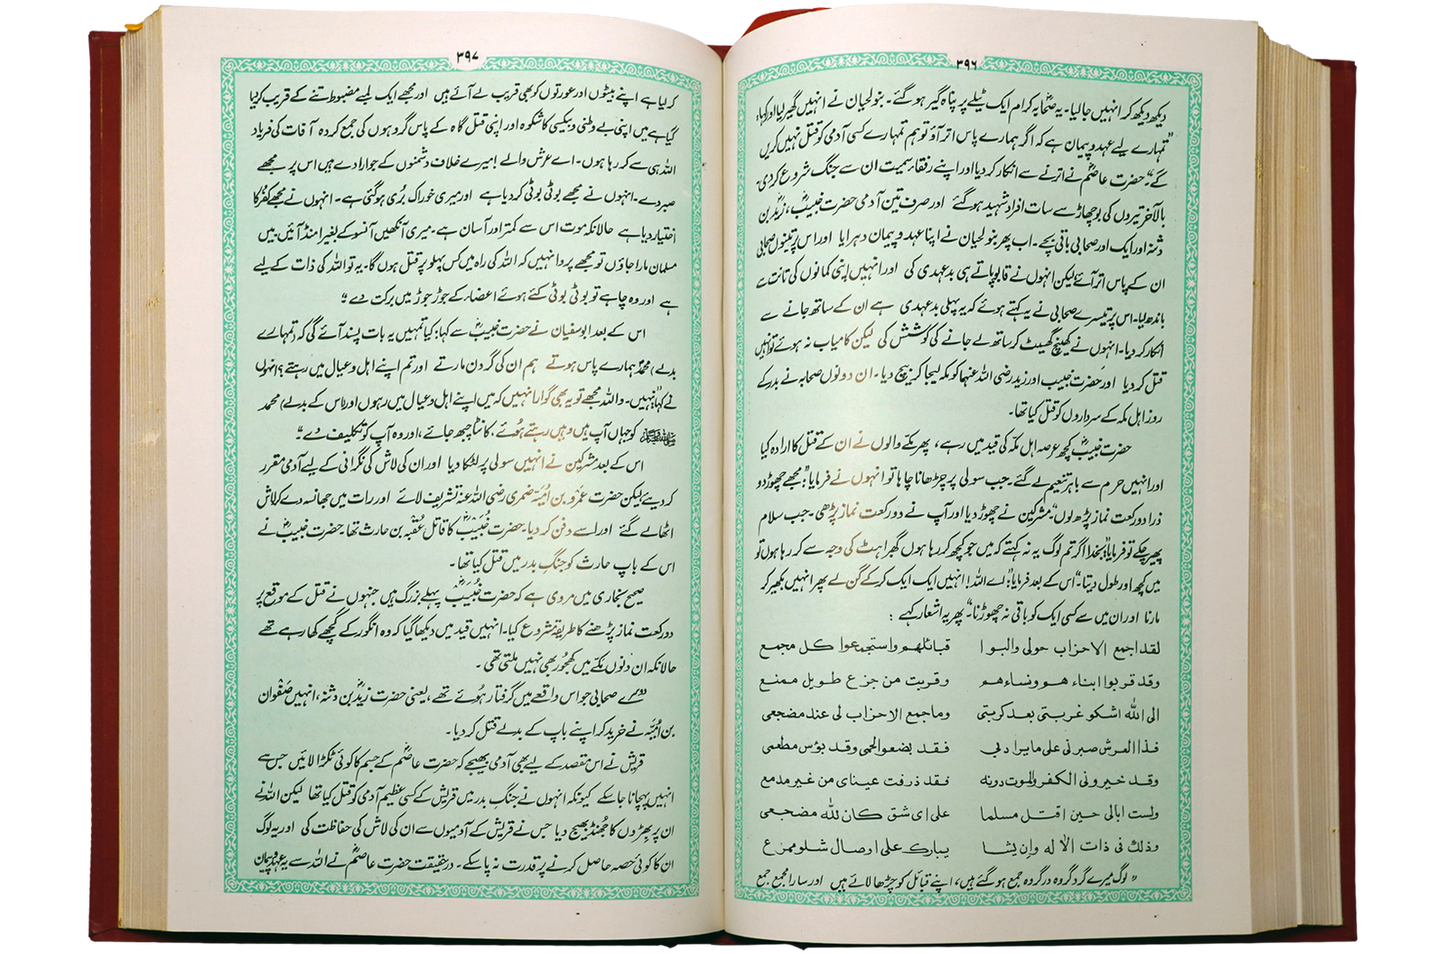 ۳۹۶
دیکھ دیکھ کر انہیں جا لیا۔ یہ صحابہ کرام ایک ٹیلے پر پناہ گیر ہو گئے۔ بنو لحیان نے انہیں گھیر لیا اور کہا،
"تمہارے لیے عہد و پیمان ہے کہ اگر ہمارے پاس اتر آؤ تو ہم تمہارے کسی آدمی کو قتل نہیں کریں
گے"۔ حضرت عاصمؓ نے اترنے سے انکار کر دیا اور اپنے رفقاء سمیت ان سے جنگ شروع کر دی۔
بالآخر تیروں کی بوچھاڑ سے سات افراد شہید ہو گئے اور صرف تین آدمی حضرت خبیبؓ، زیدؓ بن
دثنہ اور ایک اور صحابی باقی بچے۔ اب پھر بنو لحیان نے اپنا عہد و پیمان دہرایا اور اس پر تینوں صحابی
ان کے پاس اتر آئے لیکن انہوں نے قابو پاتے ہی بدعہدی کی اور انہیں اپنی کمانوں کی تانت سے
باندھ لیا۔ اس پر تیسرے صحابی نے یہ کہتے ہوئے کہ یہ پہلی بدعہدی ہے ان کے ساتھ جانے سے
انکار کر دیا۔ انہوں نے کھینچ گھسیٹ کر ساتھ لے جانے کی کوشش کی لیکن کامیاب نہ ہوئے تو انہیں
قتل کر دیا اور حضرت خبیب اور زید رضی اللہ عنہما کو مکہ لیجا کر بیچ دیا۔ ان دونوں صحابہ نے بدر کے
روز اہل مکہ کے سرداروں کو قتل کیا تھا۔
حضرت خبیبؓ کچھ عرصہ اہل مکہ کی قید میں رہے، پھر مکے والوں نے ان کے قتل کا ارادہ کیا
اور انہیں حرم سے باہر تنعیم لے گئے۔ جب سولی پر چڑھانا چاہا تو انہوں نے فرمایا: "مجھے چھوڑ دو
ذرا دو رکعت نماز پڑھ لوں"۔ مشرکین نے چھوڑ دیا اور آپ نے دو رکعت نماز پڑھی۔ جب سلام
پھیر چکے تو فرمایا: "بخدا اگر تم لوگ یہ نہ کہتے کہ میں جو کچھ کر رہا ہوں گھبراہٹ کی وجہ سے کر رہا ہوں تو
میں کچھ اور طول دیتا"۔ اس کے بعد فرمایا: "اے اللہ! انہیں ایک ایک کر کے گن لے پھر انہیں بکھیر کر
مارنا اور ان میں سے کسی ایک کو باقی نہ چھوڑنا"۔ پھر یہ اشعار کہے :
لقد اجمع الاحزاب حولی والبوا قبائلھم واستجمعوا کل مجمع
وقد قربوا ابناء ھم ونساء ھم وقربت من جزع طویل ممنع
الی اللہ اشکو غربتی بعد کربتی وما جمع الاحزاب لی عند مضجعی
فذا العرش صبرنی علی ما یراد بی فقد بضعوا لحمی وقد بؤس مطعمی
وقد خیرونی الکفر والموت دونہ فقد ذرفت عینای من غیر مدمع
ولست ابالی حین اقتل مسلما علی ای شق کان للہ مضجعی
وذلک فی ذات الالہ وان یشا یبارک علی اوصال شلو ممزع
"لوگ میرے گرد گروہ در گروہ جمع ہو گئے ہیں، اپنے قبائل کو چڑھا لائے ہیں اور سارا مجمع جمع
۳۹۷
کر لیا ہے اپنے بیٹوں اور عورتوں کو بھی قریب لے آئے ہیں اور مجھے ایک لمبے مضبوط تنے کے قریب کر لیا
گیا ہے میں اپنی بے وطنی و بیکسی کا شکوہ اور اپنی قتل گاہ کے پاس گروہوں کی جمع کردہ آفات کی فریاد
اللہ ہی سے کر رہا ہوں۔ اے عرش والے! میرے خلاف دشمنوں کے جو ارادے ہیں اس پر مجھے
صبر دے۔ انہوں نے مجھے بوٹی بوٹی کر دیا ہے اور میری خوراک بُری ہو گئی ہے۔ انہوں نے مجھے کفر کا
اختیار دیا ہے حالانکہ موت اس سے کمتر اور آسان ہے۔ میری آنکھیں آنسو کے بغیر امنڈ آئیں۔ میں
مسلمان مارا جاؤں تو مجھے پروا نہیں کہ اللہ کی راہ میں کس پہلو پر قتل ہوں گا۔ یہ تو اللہ کی ذات کے لیے
ہے اور وہ چاہے تو بوٹی بوٹی کئے ہوئے اعضاء کے جوڑ جوڑ میں برکت دے"
اس کے بعد ابو سفیان نے حضرت خبیبؓ سے کہا: کیا تمہیں یہ بات پسند آئے گی کہ (تمہارے
بدلے) محمدؐ ہمارے پاس ہوتے ہم ان کی گردن مارتے اور تم اپنے اہل و عیال میں رہتے؟ انہوں
نے کہا: "نہیں۔ واللہ مجھے تو یہ بھی گوارا نہیں کہ میں اپنے اہل و عیال میں رہوں اور (اس کے بدلے) محمد
ﷺ کو جہاں آپ ہیں وہیں رہتے ہوئے، کانٹا چبھ جائے، اور وہ آپ کو تکلیف دے"۔
اس کے بعد مشرکین نے انہیں سولی پر لٹکا دیا اور ان کی لاش کی نگرانی کے لیے آدمی مقرر
کر دیئے لیکن حضرت عمرو بن امیہ ضمری رضی اللہ عنہ تشریف لائے اور رات میں جھانسہ دے کر لاش
اٹھا لے گئے اور اسے دفن کر دیا۔ حضرت خُبَیبؓ کا قاتل عقبہ بن حارث تھا۔ حضرت خبیبؓ نے
اس کے باپ حارث کو جنگِ بدر میں قتل کیا تھا۔
صحیح بخاری میں مروی ہے کہ حضرت خُبَیبؓ پہلے بزرگ ہیں جنہوں نے قتل کے موقع پر
دو رکعت نماز پڑھنے کا طریقہ شروع کیا۔ انہیں قید میں دیکھا گیا کہ وہ انگور کے گچھے کھا رہے تھے
حالانکہ ان دنوں مکے میں کھجور بھی نہیں ملتی تھی۔
دوسرے صحابی جو اس واقعے میں گرفتار ہوئے تھے، یعنی حضرت زیدؓ بن دثنہ، انہیں صفوان
بن امیہ نے خرید کر اپنے باپ کے بدلے قتل کر دیا۔
قریش نے اس مقصد کے لیے بھی آدمی بھیجے کہ حضرت عاصمؓ کے جسم کا کوئی ٹکڑا لائیں جس سے
انہیں پہچانا جا سکے کیونکہ انہوں نے جنگِ بدر میں قریش کے کسی عظیم آدمی کو قتل کیا تھا لیکن اللہ نے
ان پر بھِڑوں کا جھُنڈ بھیج دیا جس نے قریش کے آدمیوں سے ان کی لاش کی حفاظت کی اور یہ لوگ
ان کا کوئی حصہ حاصل کرنے پر قدرت نہ پا سکے۔ درحقیقت حضرت عاصمؓ نے اللہ سے یہ عہد و پیمان